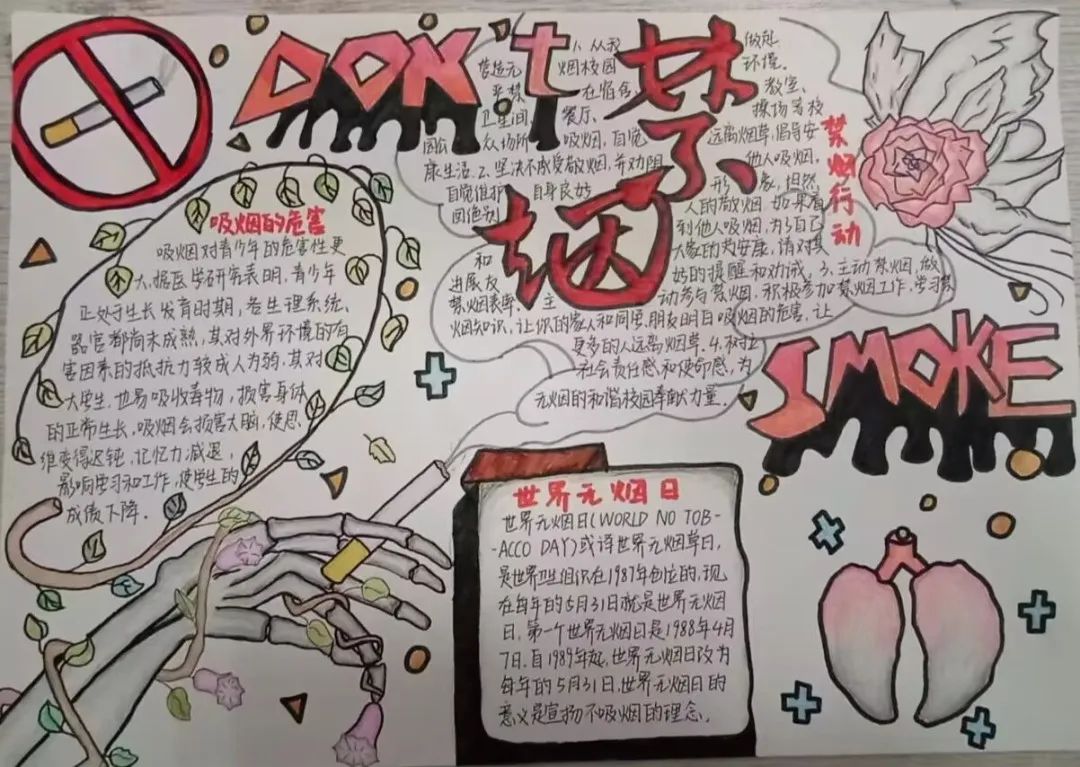 DON't
禁了烟
SMOKE
吸烟的危害
吸烟对青少年的危害性更
大,据医学研究表明,青少年
正处于生长发育时期,各生理系统、
器官都尚未成熟,其对外界环境的有
害因素的抵抗力较成人为弱,其对
大学生,也易吸收毒物,损害身体
的正常生长,吸烟会损害大脑,使思
维变得迟钝,记忆力减退,
影响学习和工作,使学生的
成绩下降.
禁烟行动
1、从我 做起
营造无 烟校园 环境.
严禁 在宿舍、 教室、
卫生间、 餐厅、 操场等校
园公 众场所 吸烟,自觉 远离烟草,倡导安
康生活.2.坚决不承受敬烟,并劝阻 他人吸烟,
自觉维护 自身良好 形 象,坦然
回绝别 人的敬烟.如果看
到他人吸烟,为了自己
和 大家的 安康,请对其
进展友 好的提醒和劝诫.3、主动禁烟,做
禁烟表率. 主 动参与禁烟,积极参加禁烟工作,学习禁
烟知识,让你的家人和同学、朋友明白吸烟的危害,让
更多的人远离烟草.4.树立
社会责任感和使命感,为
无烟的和谐校园奉献力量.
世界无烟日
世界无烟日(WORLD NO TOB-
-ACCO DAY)或译世界无烟草日,
是世界卫生组织在1987年创立的,现
在每年的5月31日就是世界无烟
日,第一个世界无烟日是1988年4月
7日.自1989年起,世界无烟日改为
每年的5月31日.世界无烟日的
意义是宣扬不吸烟的理念.